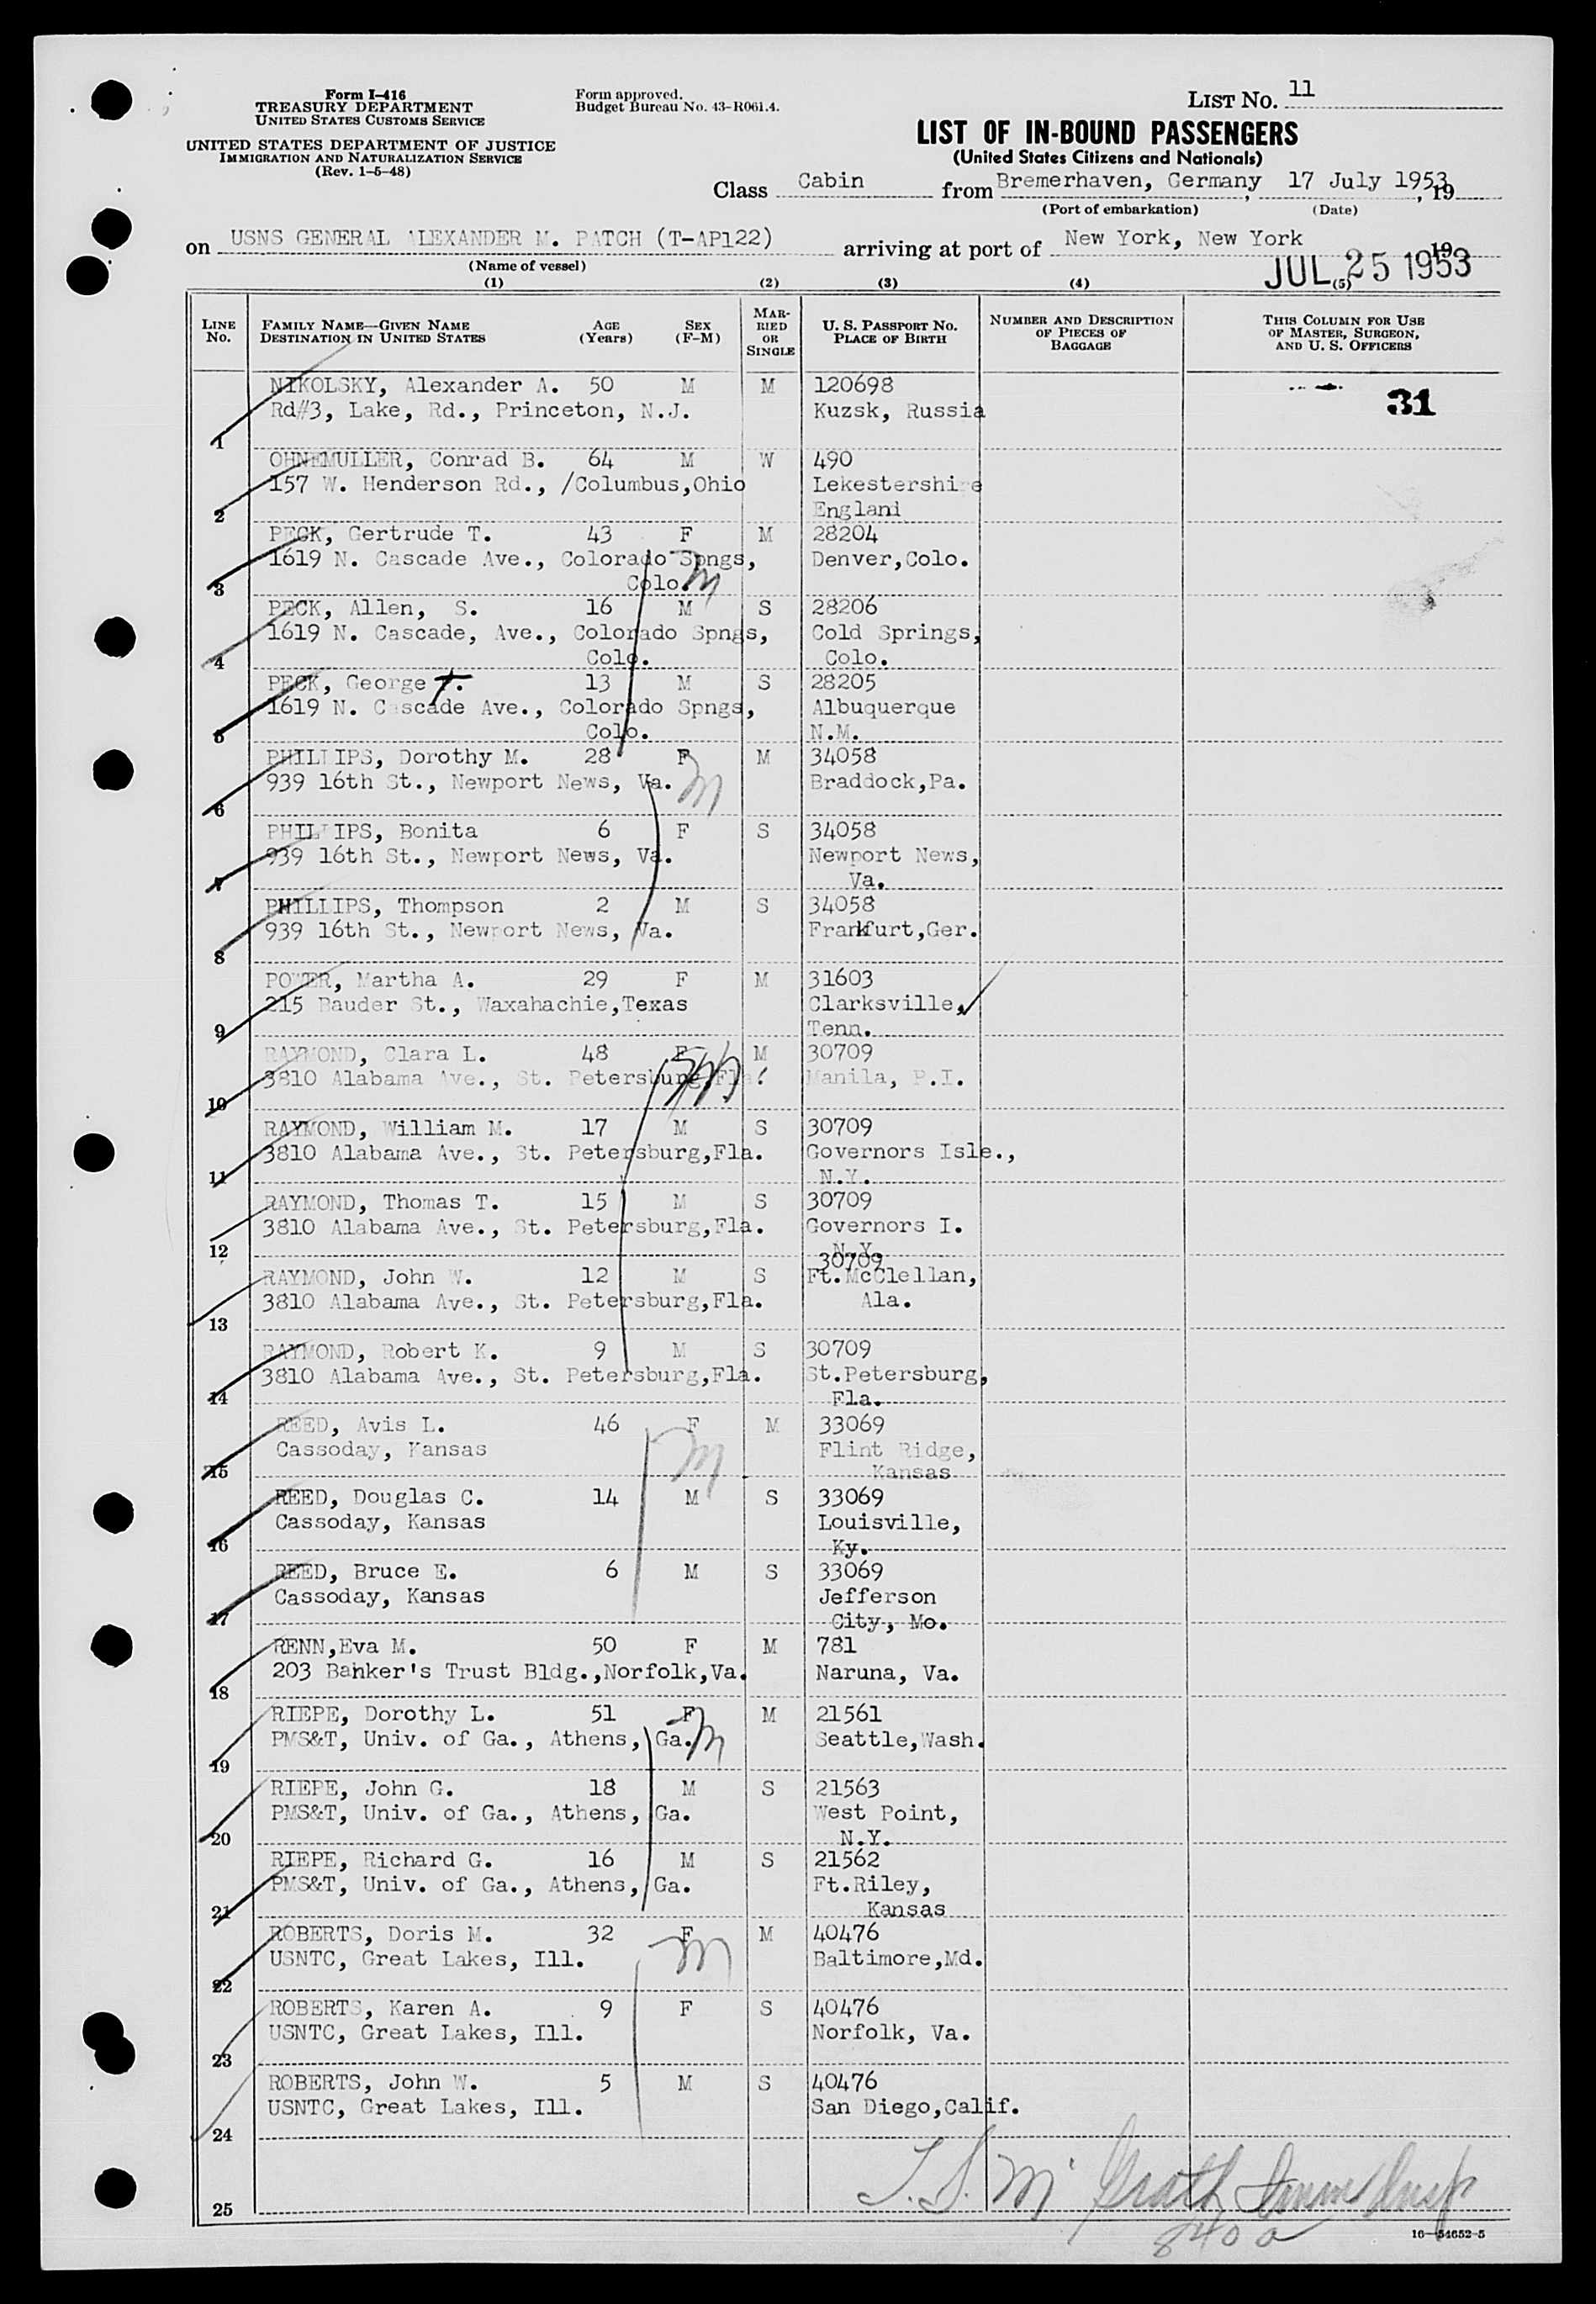 Form I-416
TREASURY DEPARTMENT
UNITED STATES CUSTOMS SERVICE
UNITED STATES DEPARTMENT OF JUSTICE
IMMIGRATION AND NATURALIZATION SERVICE
(Rev. 1-5-48)
Form approved.
Budget Bureau No. 43-R061.4.
LIST No. 11
LIST OF IN-BOUND PASSENGERS
(United States Citizens and Nationals)
Class Cabin from Bremerhaven, Germany, 17 July 1953, 19
(Port of embarkation) (Date)
on USNS GENERAL ALEXANDER M. PATCH (T-AP122) arriving at port of New York, New York 19
(Name of vessel) JUL 25 1953
(1) (2) (3) (4) (5)
LINE No. FAMILY NAME—GIVEN NAME DESTINATION IN UNITED STATES AGE (Years) SEX (F-M) MARRIED OR SINGLE U. S. PASSPORT NO. PLACE OF BIRTH NUMBER AND DESCRIPTION OF PIECES OF BAGGAGE THIS COLUMN FOR USE OF MASTER, SURGEON, AND U. S. OFFICERS
NIKOLSKY, Alexander A. 50 M M 120698 31
Rd#3, Lake, Rd., Princeton, N.J. Kuzsk, Russia
1
OHNEMULLER, Conrad B. 64 M W 490
157 W. Henderson Rd., /Columbus,Ohio Lekestershire
2 England
PECK, Gertrude T. 43 F M 28204
1619 N. Cascade Ave., Colorado Spngs, Denver,Colo.
3 Colo. m
PECK, Allen, S. 16 M S 28206
1619 N. Cascade, Ave., Colorado Spngs, Cold Springs,
4 Colo. Colo.
PECK, George T. 13 M S 28205
1619 N. Cascade Ave., Colorado Spngs, Albuquerque
5 Colo. N.M.
PHILLIPS, Dorothy M. 28 F M 34058
939 16th St., Newport News, Va. m Braddock,Pa.
6
PHILLIPS, Bonita 6 F S 34058
939 16th St., Newport News, Va. Newport News,
7 Va.
PHILLIPS, Thompson 2 M S 34058
939 16th St., Newport News, Va. Frankfurt,Ger.
8
POWER, Martha A. 29 F M 31603
215 Bauder St., Waxahachie,Texas Clarksville,
9 Tenn.
RAYMOND, Clara L. 48 F M 30709
3810 Alabama Ave., St. Petersburg,Fla. Manila, P.I.
10
RAYMOND, William M. 17 M S 30709
3810 Alabama Ave., St. Petersburg,Fla. Governors Isle.,
11 N.Y.
RAYMOND, Thomas T. 15 M S 30709
3810 Alabama Ave., St. Petersburg,Fla. Governors I.
12 N.Y.
30709
RAYMOND, John W. 12 M S Ft.McClellan,
3810 Alabama Ave., St. Petersburg,Fla. Ala.
13
RAYMOND, Robert K. 9 M S 30709
3810 Alabama Ave., St. Petersburg,Fla. St.Petersburg,
14 Fla.
REED, Avis L. 46 F M 33069
Cassoday, Kansas m Flint Ridge,
15 Kansas
REED, Douglas C. 14 M S 33069
Cassoday, Kansas Louisville,
16 Ky.
REED, Bruce E. 6 M S 33069
Cassoday, Kansas Jefferson
17 City, Mo.
RENN,Eva M. 50 F M 781
203 Banker's Trust Bldg.,Norfolk,Va. Naruna, Va.
18
RIEPE, Dorothy L. 51 F M 21561
PMS&T, Univ. of Ga., Athens, Ga. m Seattle,Wash.
19
RIEPE, John G. 18 M S 21563
PMS&T, Univ. of Ga., Athens, Ga. West Point,
20 N.Y.
RIEPE, Richard G. 16 M S 21562
PMS&T, Univ. of Ga., Athens, Ga. Ft.Riley,
21 Kansas
ROBERTS, Doris M. 32 F M 40476
USNTC, Great Lakes, Ill. m Baltimore,Md.
22
ROBERTS, Karen A. 9 F S 40476
USNTC, Great Lakes, Ill. Norfolk, Va.
23
ROBERTS, John W. 5 M S 40476
USNTC, Great Lakes, Ill. San Diego,Calif.
24
T. S. McGrath Imm Insp
25
840a
16—54652-5